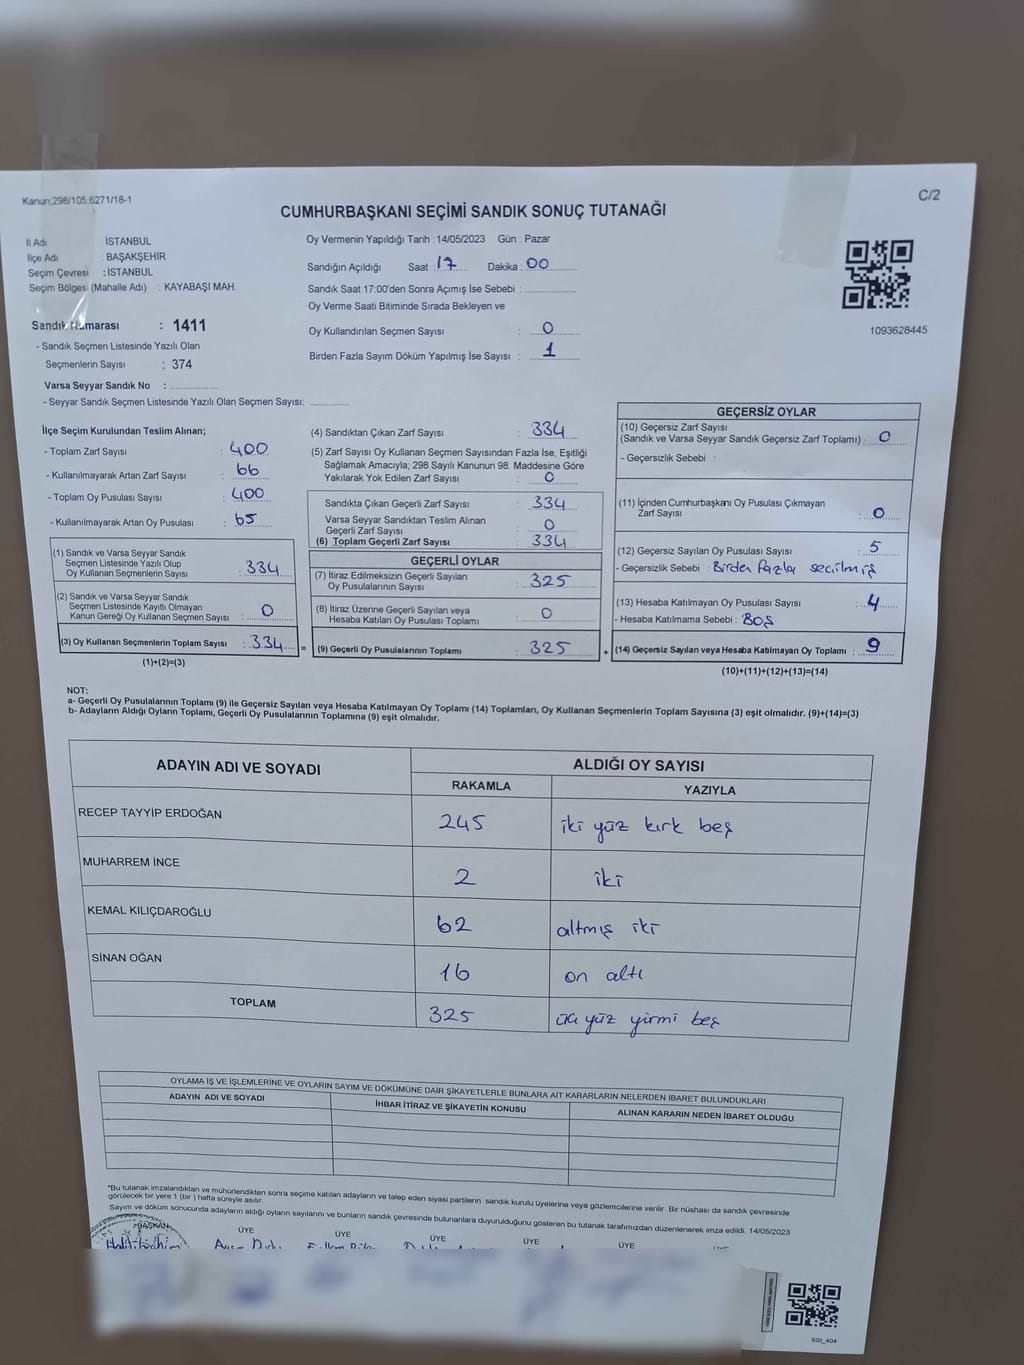 Kanun:298/105,6271/18-1
C/2
CUMHURBAŞKANI SEÇİMİ SANDIK SONUÇ TUTANAĞI
İl Adı : İSTANBUL
İlçe Adı : BAŞAKŞEHİR
Seçim Çevresi : İSTANBUL
Seçim Bölgesi (Mahalle Adı) : KAYABAŞI MAH.
Sandık Numarası : 1411
- Sandık Seçmen Listesinde Yazılı Olan
Seçmenlerin Sayısı : 374
Varsa Seyyar Sandık No :
- Seyyar Sandık Seçmen Listesinde Yazılı Olan Seçmen Sayısı:
Oy Vermenin Yapıldığı Tarih : 14/05/2023 Gün : Pazar
Sandığın Açıldığı Saat 17 Dakika 00
Sandık Saat 17:00'den Sonra Açımış İse Sebebi :
Oy Verme Saati Bitiminde Sırada Bekleyen ve
Oy Kullandırılan Seçmen Sayısı : 0
Birden Fazla Sayım Döküm Yapılmış İse Sayısı : 1
1093628445
İlçe Seçim Kurulundan Teslim Alınan;
- Toplam Zarf Sayısı : 400
- Kullanılmayarak Artan Zarf Sayısı : 66
- Toplam Oy Pusulası Sayısı : 400
- Kullanılmayarak Artan Oy Pusulası : 65
(1) Sandık ve Varsa Seyyar Sandık
Seçmen Listesinde Yazılı Olup
Oy Kullanan Seçmenlerin Sayısı : 334
(2) Sandık ve Varsa Seyyar Sandık
Seçmen Listesinde Kayıtlı Olmayan
Kanun Gereği Oy Kullanan Seçmen Sayısı : 0
(3) Oy Kullanan Seçmenlerin Toplam Sayısı : 334
(1)+(2)=(3)
(4) Sandıktan Çıkan Zarf Sayısı : 334
(5) Zarf Sayısı Oy Kullanan Seçmen Sayısından Fazla İse, Eşitliği
Sağlamak Amacıyla; 298 Sayılı Kanunun 98. Maddesine Göre
Yakılarak Yok Edilen Zarf Sayısı : 0
Sandıkta Çıkan Geçerli Zarf Sayısı : 334
Varsa Seyyar Sandıktan Teslim Alınan
Geçerli Zarf Sayısı : 0
(6) Toplam Geçerli Zarf Sayısı : 334
GEÇERLİ OYLAR
(7) İtiraz Edilmeksizin Geçerli Sayılan
Oy Pusulalarının Sayısı : 325
(8) İtiraz Üzerine Geçerli Sayılan veya
Hesaba Katılan Oy Pusulası Toplamı : 0
= (9) Geçerli Oy Pusulalarının Toplamı : 325 +
GEÇERSİZ OYLAR
(10) Geçersiz Zarf Sayısı
(Sandık ve Varsa Seyyar Sandık Geçersiz Zarf Toplamı) : 0
- Geçersizlik Sebebi :
(11) İçinden Cumhurbaşkanı Oy Pusulası Çıkmayan
Zarf Sayısı : 0
(12) Geçersiz Sayılan Oy Pusulası Sayısı : 5
- Geçersizlik Sebebi : Birden fazla seçilmiş
(13) Hesaba Katılmayan Oy Pusulası Sayısı : 4
- Hesaba Katılmama Sebebi : Boş
(14) Geçersiz Sayılan veya Hesaba Katılmayan Oy Toplamı : 9
(10)+(11)+(12)+(13)=(14)
NOT:
a- Geçerli Oy Pusulalarının Toplamı (9) ile Geçersiz Sayılan veya Hesaba Katılmayan Oy Toplamı (14) Toplamları, Oy Kullanan Seçmenlerin Toplam Sayısına (3) eşit olmalıdır. (9)+(14)=(3)
b- Adayların Aldığı Oyların Toplamı, Geçerli Oy Pusulalarının Toplamına (9) eşit olmalıdır.
ADAYIN ADI VE SOYADI ALDIĞI OY SAYISI
RAKAMLA YAZIYLA
RECEP TAYYİP ERDOĞAN 245 iki yüz kırk beş
MUHARREM İNCE 2 iki
KEMAL KILIÇDAROĞLU 62 altmış iki
SİNAN OĞAN 16 on altı
TOPLAM 325 üç yüz yirmi beş
OYLAMA İŞ VE İŞLEMLERİNE VE OYLARIN SAYIM VE DÖKÜMÜNE DAİR ŞİKAYETLERLE BUNLARA AİT KARARLARIN NELERDEN İBARET BULUNDUKLARI
ADAYIN ADI VE SOYADI İHBAR İTİRAZ VE ŞİKAYETİN KONUSU ALINAN KARARIN NEDEN İBARET OLDUĞU
*Bu tutanak imzalandıktan ve mühürlendikten sonra seçime katılan adayların ve talep eden siyasi partilerin sandık kurulu üyelerine veya gözlemcilerine verilir. Bir nüshası da sandık çevresinde
görülecek bir yere 1 (bir ) hafta süreyle asılır.
Sayım ve döküm sonucunda adayların aldığı oyların sayılarını ve bunların sandık çevresinde bulunanlara duyurulduğunu gösteren bu tutanak tarafımızdan düzenlenerek imza edildi. 14/05/2023
BAŞKAN ÜYE ÜYE ÜYE ÜYE ÜYE
SSI_404